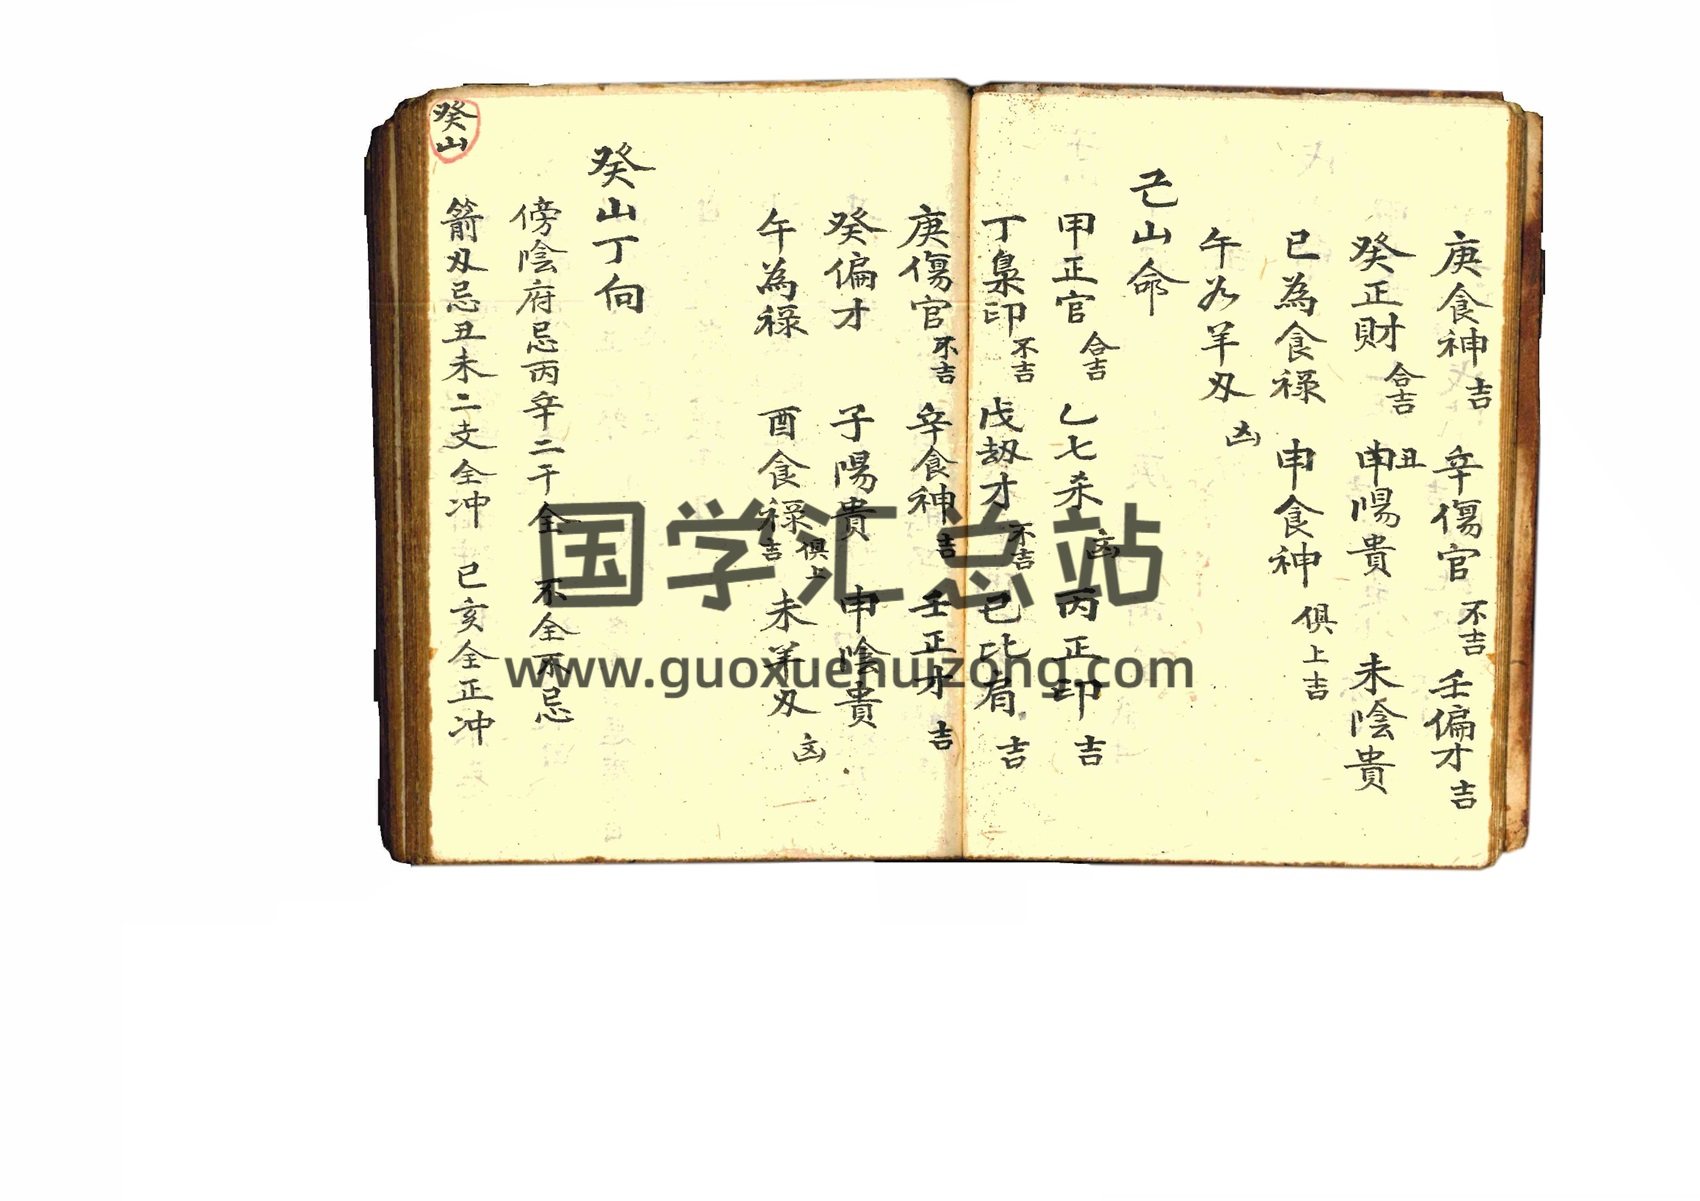 庚食神吉 辛傷官不吉 壬偏才吉
癸正財合吉 丑申陽貴 未陰貴
巳為食祿 申食神俱上吉
午為羊刃凶
己山命
甲正官合吉 乙七杀凶 丙正印吉
丁梟印不吉 戊劫才不吉 己比肩吉
庚傷官不吉 辛食神吉 壬正才吉
癸偏才 子陽貴 申陰貴
午為祿 酉食祿俱上吉 未羊刃凶
癸山丁向
傍陰府忌丙辛二干全 不全不忌
箭刃忌丑未二支全冲 巳亥全正冲
癸山
国学汇总站
www.guoxuehuizong.com